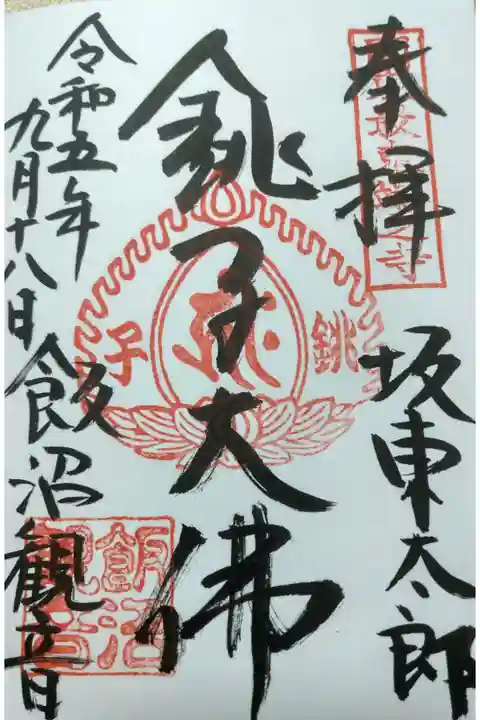 奉拝
坂東太郎
銚子大佛
銚子
令和五年
九月十八日
飯沼観音
飯沼観音